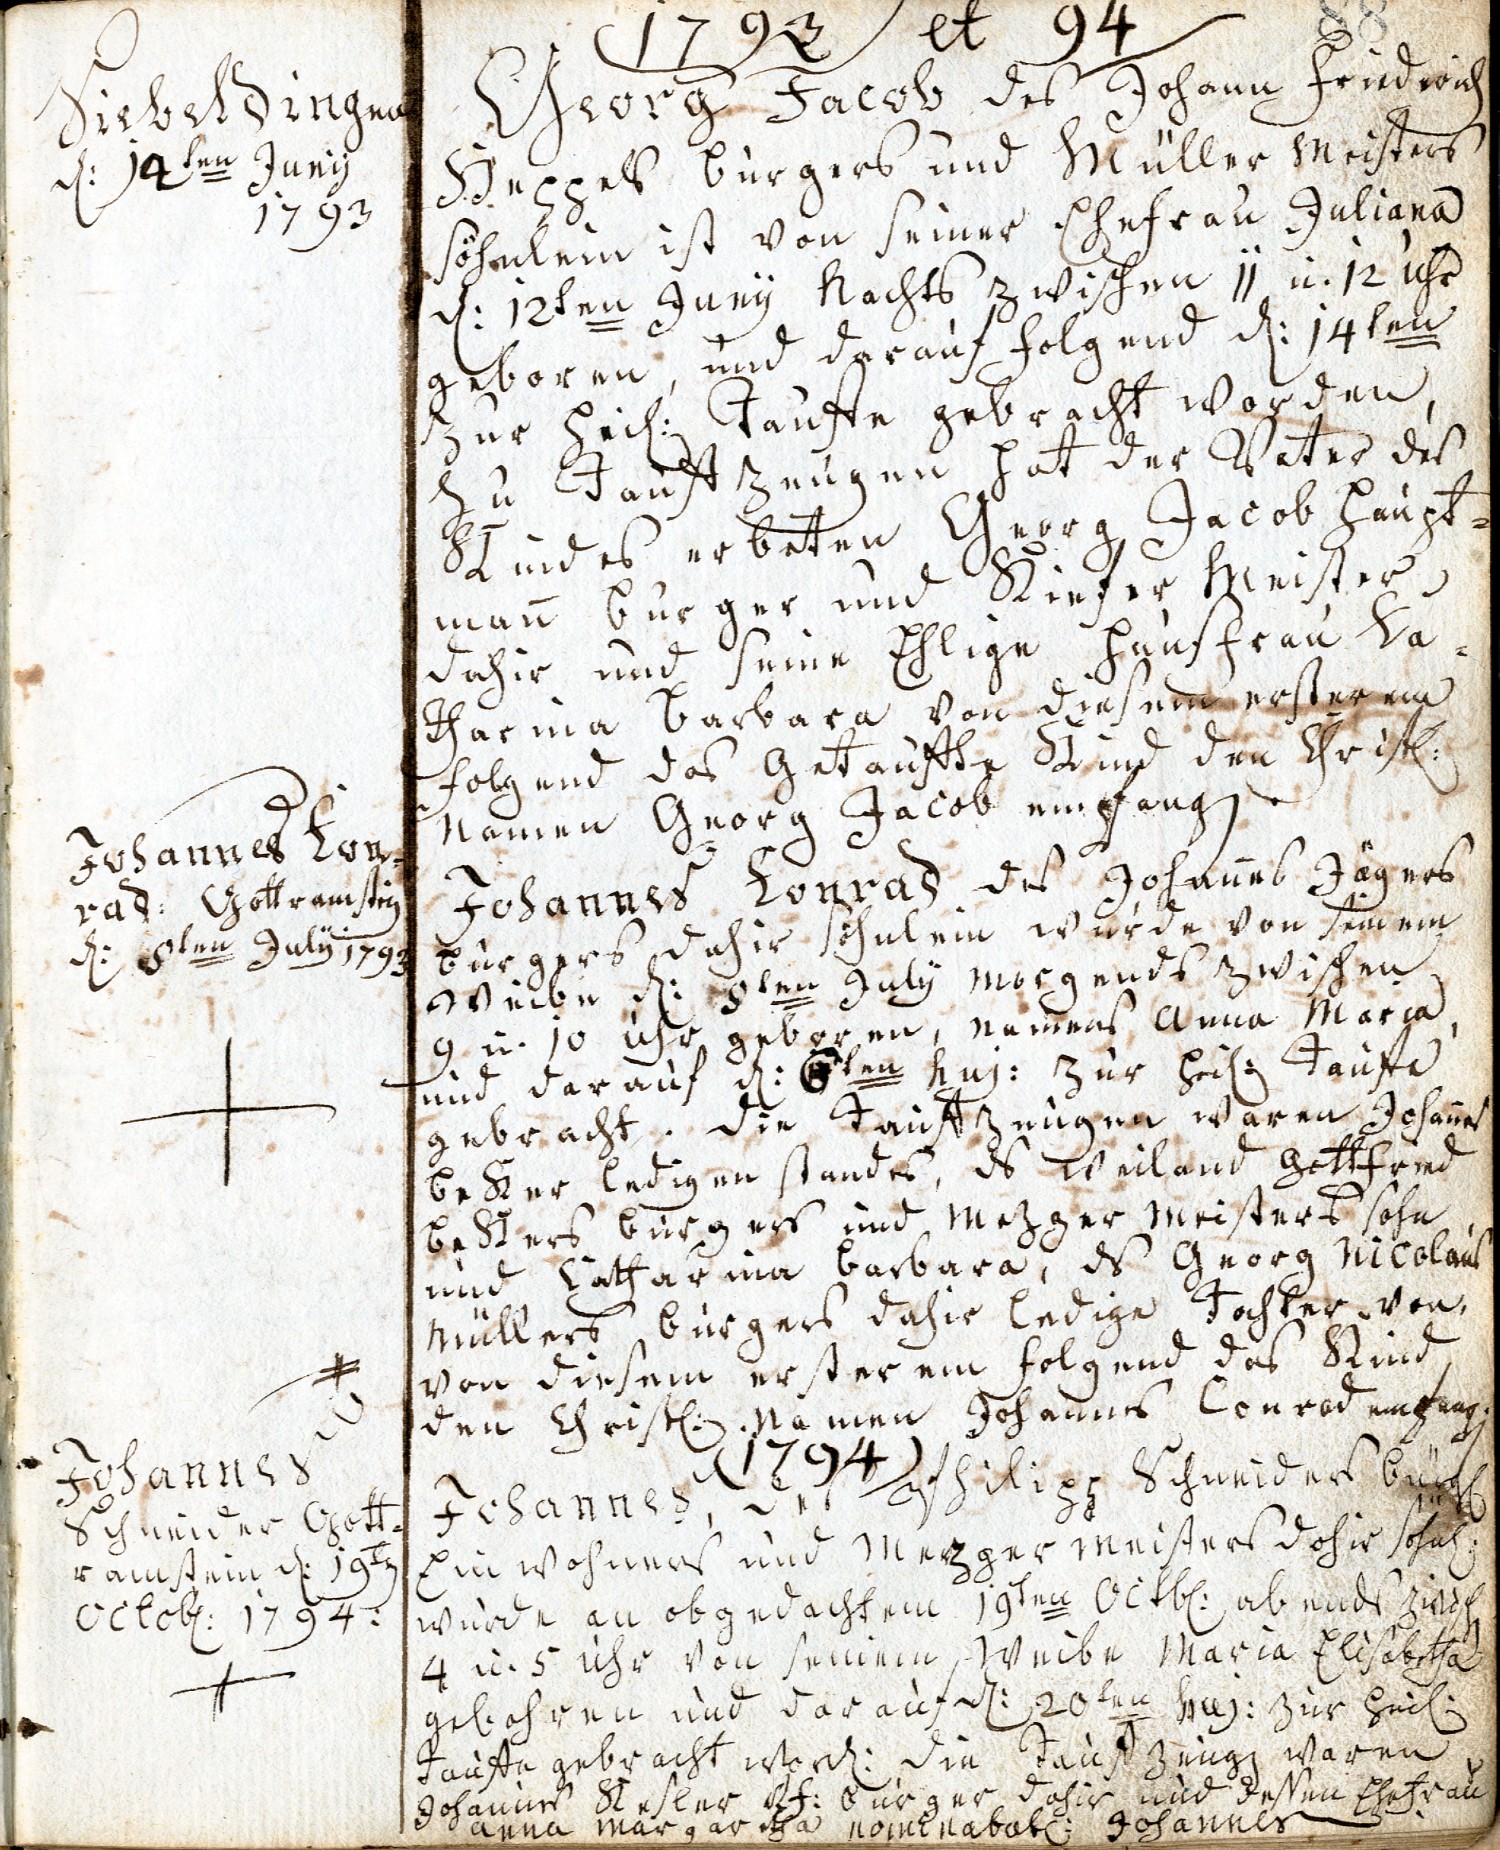 1793 et 94
88
Siebeldingen
d: 14ten Juny
1793
Georg Jacob des Johann Friedrich
Keppels burgers und Müller Meisters
söhnlein ist von seiner Ehefrau Juliana
d: 12ten Juny Nachts zwischen 11 u. 12 Uhr
geboren, und darauf folgend d: 14ten
zur heil: Tauffe gebracht worden,
zu Tauffzeugen hat der Vater des
Kindes erbetten Georg Jacob Haupt=
mañ burger und Kiefer Meister
dahir und seine Ehlige Hausfrau Ka=
tharina barbara von diesem ersterem
folgend das Getauffte Kind den Christl:
Namen Georg Jacob empfang
Johannes Kon=
rad: Gottramstein
d: 8ten July 1793
Johannes Konrad des Johañes Jägers
burgers dahir söhnlein wurde von seinem
Weibe d: 8ten July Morgends zwischen
9 u. 10 Uhr geboren, namens Anna Maria,
und darauf d: ten huj: zur heil: Tauffe
gebracht. die Tauffzeugen waren Johañes
beker ledigen standes, ds weiland Gottfried
bekers burgers und Mezger Meisters sohn
und Catharina barbara, ds Georg Nicolaus
Müllers burgers dahir ledige Tochter von.
von diesem ersterem folgend das Kind
den Christl: Namen Johannes Conrad empfang:
(1794)
Johannes
Schneider Gott=
ramstein d: 19ten
Octob: 1794:
Johannes, des Philipp Schneiders bürgl
Einwohners und Mezger Meisters dahir söhnl:
wurde an obgedachtem 19ten Octb: abends zwisch
4 u. 5 Uhr von seinem Weibe Maria Elisabetha
gebohren und darauf d: 20ten huj: zur heil:
Tauffe gebracht word: die Tauffzeug waren
Johannes Kesler burger dahir und dessen Ehefrau
anna margaretha nominabat: Johannes